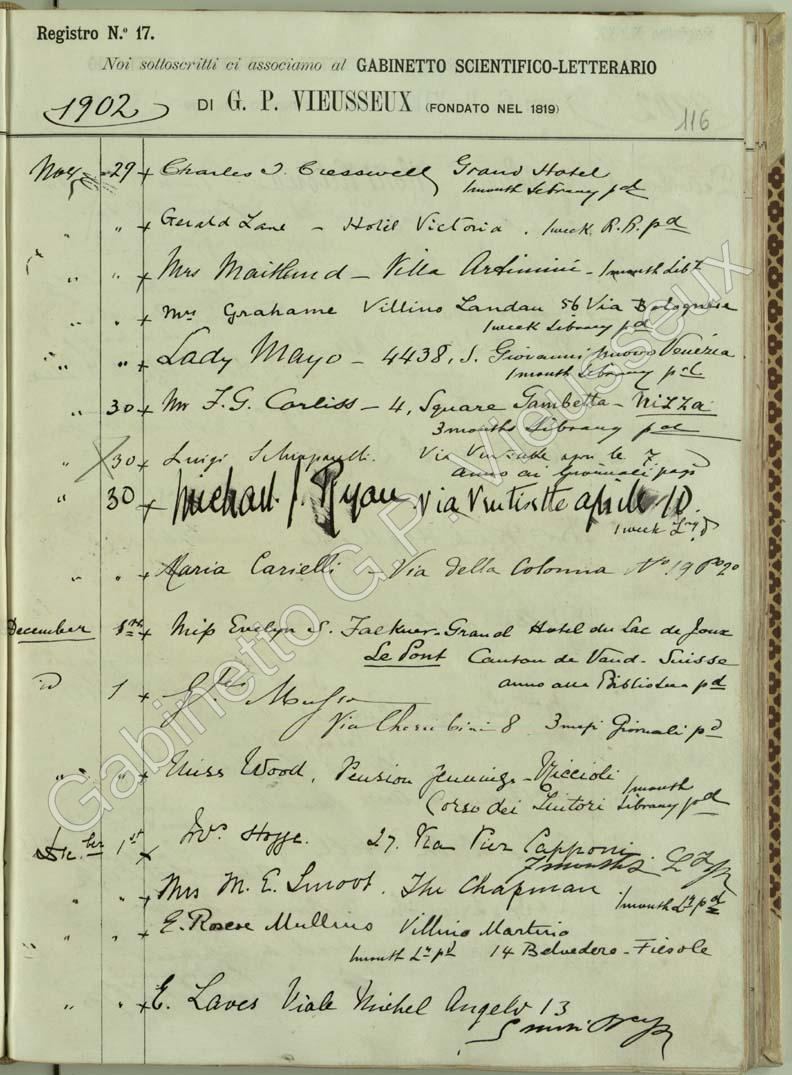 Registro N.º 17.
Noi sottoscritti ci associamo al GABINETTO SCIENTIFICO-LETTERARIO
1902 DI G. P. VIEUSSEUX (FONDATO NEL 1819)
116
29 + Charles J. Cresswell Grand Hotel
1 month Library pd
" " + Gerald Lane - Hotel Victoria. 1 week R.R. pd
" " + Mrs Maitland - Villa Artimini - 1 month
" " + Mrs Grahame Villino Landau 56 Via Bolognese
1 week Library pd
" " + Lady Mayo - 4438, S. Giovanni nuovo Venezia
1 month Library pd
" 30 + Mr F. G. Corliss - 4, Square Gambetta - Nizza
3 months Library pd
" 30 Luigi Via 7
anno ai Giornali
" 30 + Michael J. Ryan Via Ventisette aprile 10.
1 week
" " + Maria Carielli - Via della Colonna No 19
December 1st + Miss Evelyn S. Falkner - Grand Hotel du Lac de Joux
Le Pont Canton de Vaud - Suisse
anno alla Biblioteca pd
id 1 +
Via Cherubini 8 3 mesi Giornali pd
" " + Miss Wood, Pension Jennings - Riccioli
1 month
Corso dei Tintori Library pd
1st + Hogge. 27. Via Pier Capponi
7 months
" " + Mrs M. E. Smoot. The Chapman 1 month
" " + E. Roscoe Mullins Villino Martino
1 month 14 Belvedere - Fiesole
" " + E. Laves Viale Michel Angelo 13
Gabinetto G.P. Vieusseux